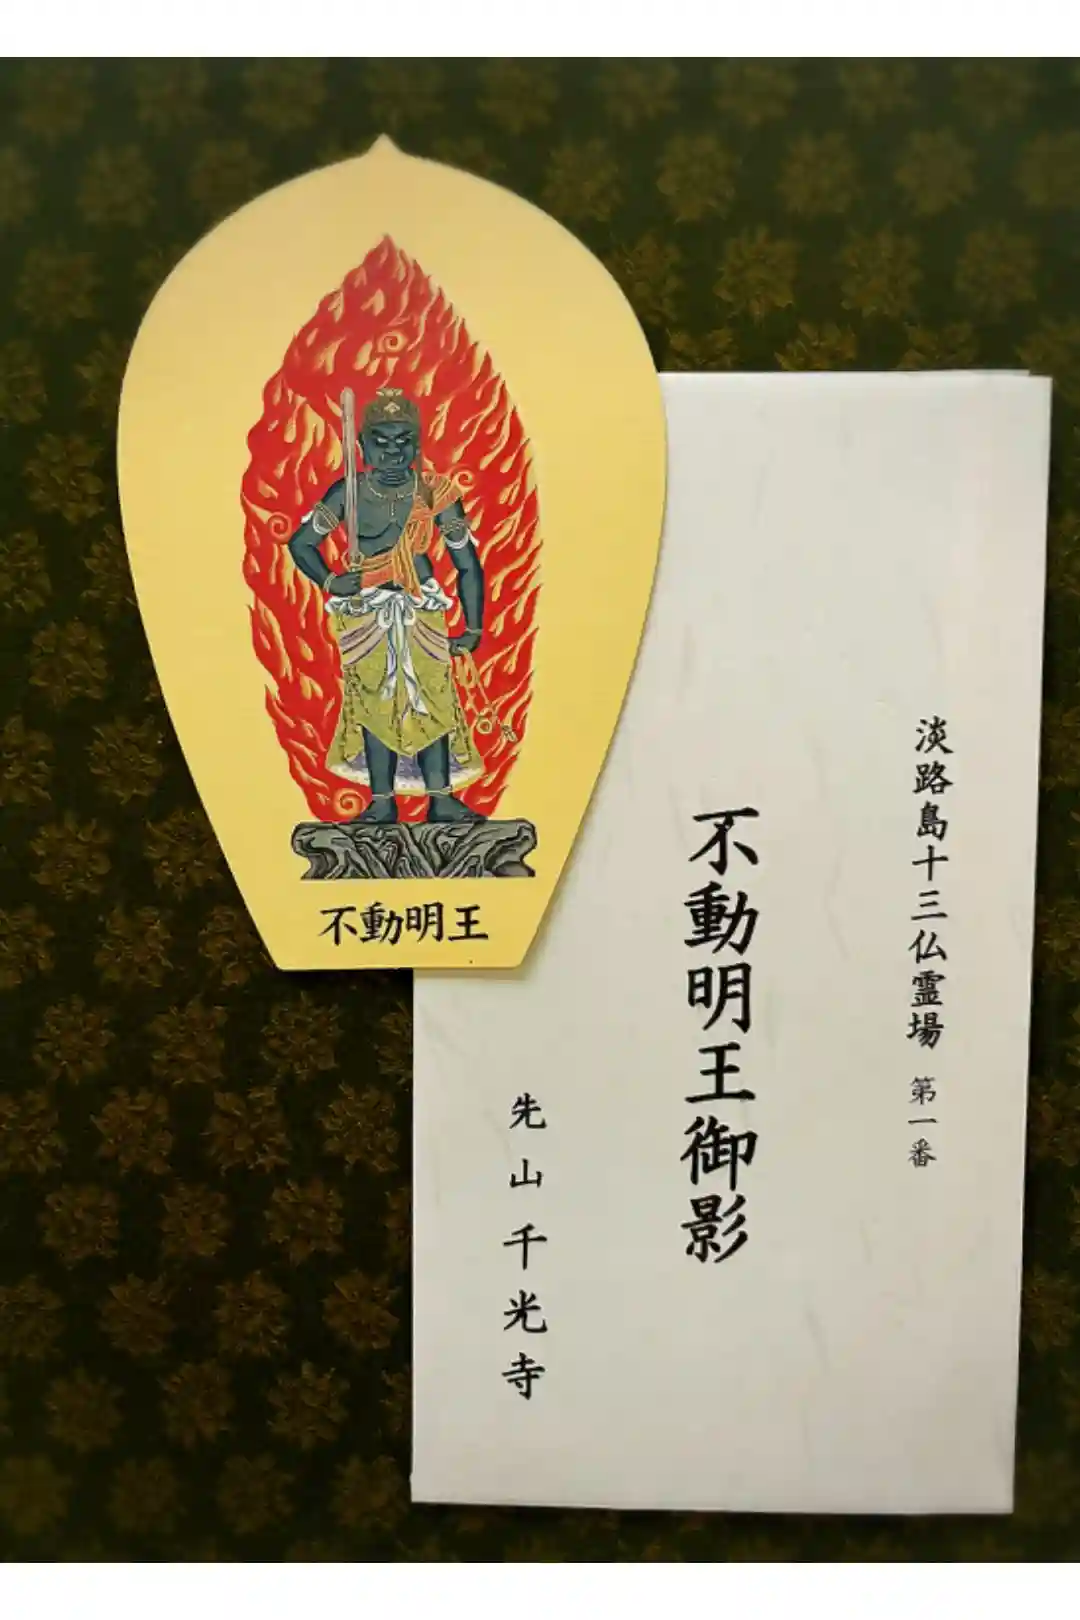 不動明王
淡路島十三仏霊場 第一番
不動明王御影
先山千光寺